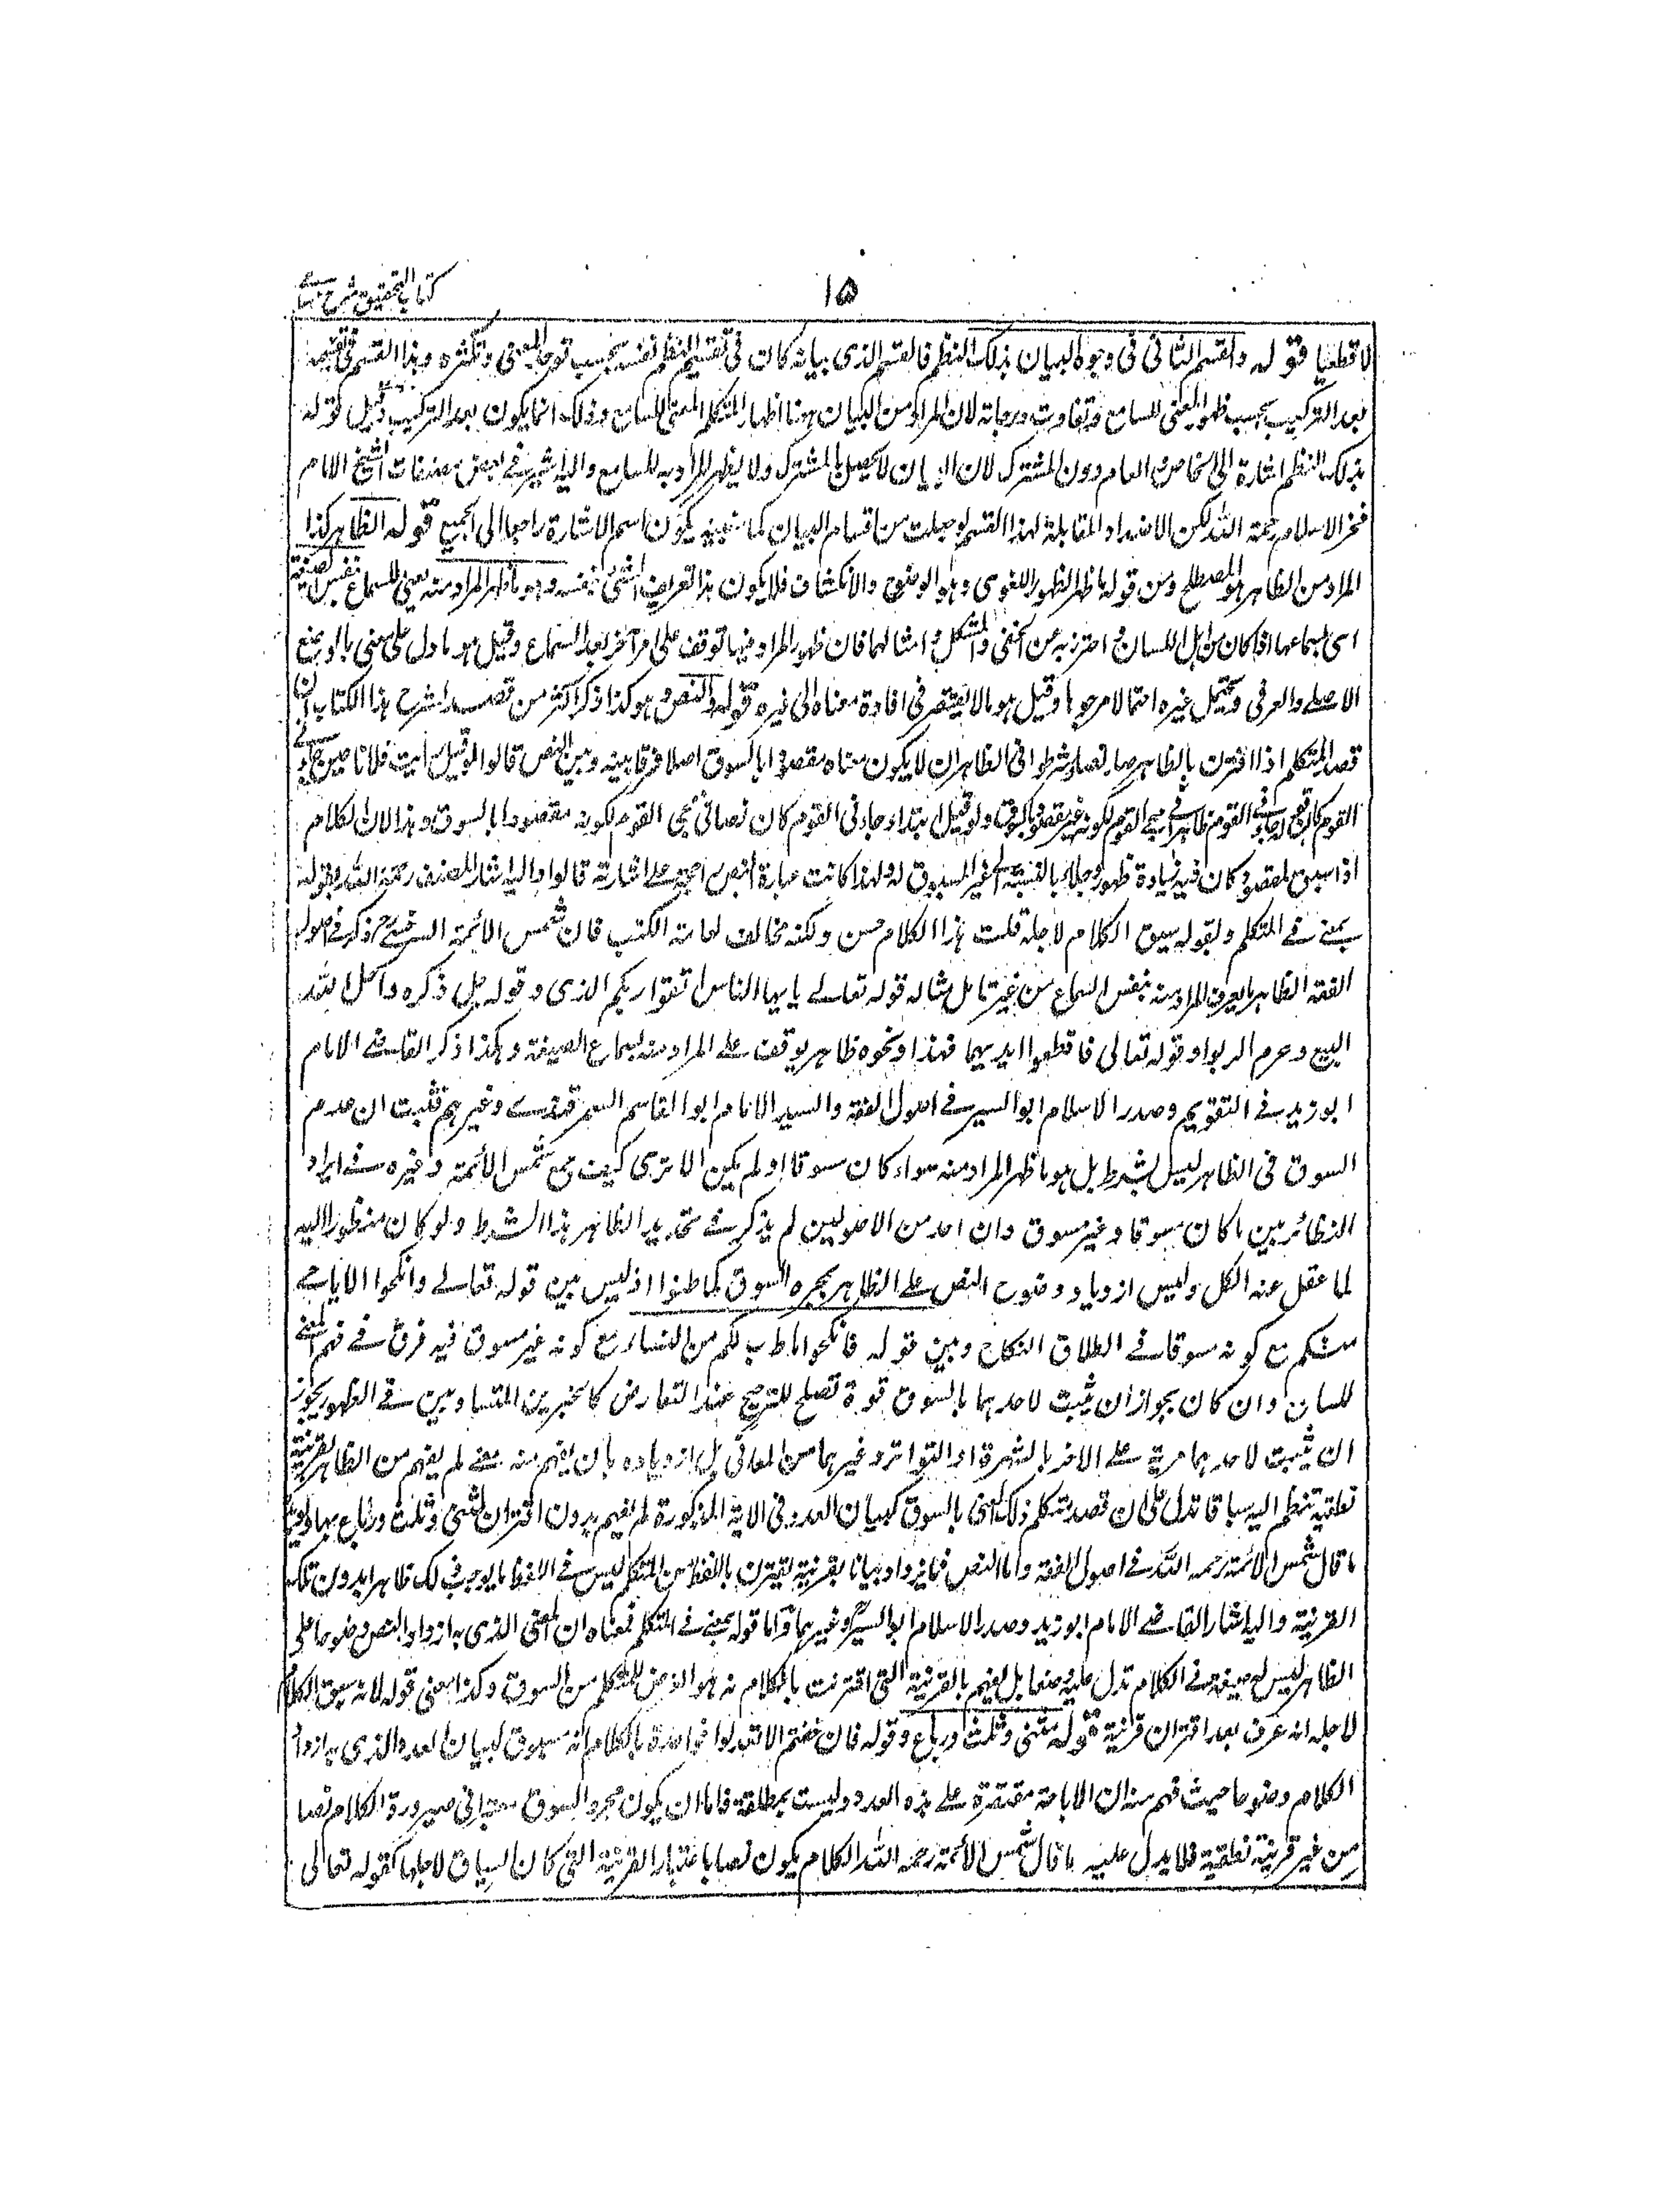 كتاب التحقيق شرح حسامي
١٥
لا قطعيا قوله والقسم الثاني في وجوه البيان بذلك النظم فالقسم الذي بيانه كان في تقسيم النظم نفسه بحسب توحد المعنى وتكثره وهذا القسم في تقسيمه
بعد التركيب بحسب ظهور المعنى للسامع وتفاوت درجاته لان المراد من البيان هنا اظهار المتكلم المعنى للسامع وذلك انما يكون بعد التركيب قيل قوله
بذلك النظم اشارة الى الخاص والعام دون المشترك لان البيان لا يحصل بالمشترك ولا يظهر المراد به للسامع واليه اشير في بعض مصنفات الشيخ الامام
فخر الاسلام رحمة الله لكن الاضداد المقابلة لهذا القسم لو جعلت من اقسام البيان كما سنبينه يكون اسم الاشارة راجعا الى الجميع قوله الظاهر كذا
المراد من الظاهر هو المصطلح ومن قوله ما ظهر الظهور اللغوى وهو الوضوح والانكشاف فلا يكون هذا تعريف الشئ بنفسه وهو ما ظهر المراد منه يعنى للسماع بنفس الصيغة
اى بسماعها اذا كان من اهل اللسان واحترز به عن الخفى والمشكل وامثالهما فان ظهور المراد فيها توقف على امر آخر بعد السماع وقيل هو ما دل على معنى بالوضع
الاصلى والعرفى ويحتمل غيره احتمالا مرجوحا وقيل هو ما لا يفتقر فى افادة معناه الى غيره قوله والنص وهو كذا ذكر اكثر من قصد لشرح هذا الكتاب ان
قصد المتكلم اذا اقترن بالظاهر صار نصا وشرطوا فى الظاهر ان لا يكون معناه مقصودا بالسوق اصلا فرقا بينه وبين النص قالوا لو قيل رأيت فلانا حين جاءنى
القوم كان قوله جاءنى القوم ظاهرا فى مجئ القوم لكونه غير مقصود بالسوق ولو قيل ابتداء جاءنى القوم كان نصا فى مجئ القوم لكونه مقصودا بالسوق وهذا لان الكلام
اذا سيق لمقصود كان فيه زيادة ظهور وجلاء بالنسبة الى غير المسوق له ولهذا كانت عبارة النص راجحة على اشارته قالوا واليه اشار المصنف رحمة الله بقوله
بمعنى فى المتكلم وبقوله سيق الكلام لاجله قلت هذا الكلام حسن ولكنه مخالف لعامة الكتب فان شمس الائمة السرخسى ذكر فى اصول
الفقه الظاهر ما يعرف المراد منه بنفس السماع من غير تامل مثاله قوله تعالى يا ايها الناس اتقوا ربكم الذى وقوله جل ذكره واحل الله
البيع وحرم الربوا وقوله تعالى فاقطعوا ايديهما فهذا ونحوه ظاهر يوقف على المراد منه بسماع الصيغة وهكذا ذكر القاضى الامام
ابو زيد فى التقويم وصدر الاسلام ابو اليسر فى اصول الفقه والسيد الامام ابو القاسم السمرقندى وغيرهم فثبت ان عدم
السوق فى الظاهر ليس بشرط بل هو ما ظهر المراد منه سواء كان مسوقا او لم يكن الا ترى كيف جمع شمس الائمة وغيره فى ايراد
النظائر بين ما كان مسوقا وغير مسوق وان احد من الاصوليين لم يذكر فى تحديد الظاهر هذا الشرط ولو كان منظورا اليه
لما غفل عنه الكل وليس ازدياد وضوح النص على الظاهر بمجرد السوق كما ظنوا اذ ليس بين قوله تعالى وانكحوا الايامى
منكم مع كونه مسوقا فى اطلاق النكاح وبين قوله فانكحوا ما طاب لكم من النساء مع كونه غير مسوق فيه فرق فى فهم المعنى
للسامع وان كان يجوز ان يثبت لاحدهما بالسوق قوة تصلح للترجيح عند التعارض كالخبرين المتساويين فى الظهور يجوز
ان يثبت لاحدهما مزية على الاخر بالشهرة او التواتر وغيرهما من المعانى بل ازدياده بان يفهم منه معنى لم يفهم من الظاهر بقرينة
نطقية تنظم اليه سباقا تدل على ان قصد المتكلم ذلك المعنى بالسوق كبيان العدد فى الاية المذكورة لم يفهم بدون اقتران مثنى وثلث ورباع بها ويؤيده
ما قال شمس الائمة رحمه الله فى اصول الفقه واما النص فما يزداد بيانا بقرينة تقترن باللفظ من المتكلم ليس فى اللفظ ما يوجب ذلك ظاهرا بدون تلك
القرينة واليه اشار القاضى الامام ابو زيد وصدر الاسلام ابو اليسر وغيرهما واما قوله بمعنى فى المتكلم فمعناه ان المعنى الذى به ازداد النص وضوحا على
الظاهر ليس له صيغة فى الكلام تدل عليه وضعا بل يفهم بالقرينة التى اقترنت بالكلام انه هو الغرض للمتكلم من السوق وكذا معنى قوله لانه سيق الكلام
لاجله انه عرف بعد اقتران قرينة قوله مثنى وثلث ورباع وقوله فان خفتم الا تعدلوا فواحدة بالكلام انه مسوق لبيان العدد الذى به ازداد
الكلام وضوحا حيث فهم منه ان الاباحة مقتصرة على هذه العدد وليست بمطلقة فاما ان يكون مجرد السوق معتبرا فى صيرورة الكلام نصا
من غير قرينة نطقية فلا يدل عليه ما قال شمس الائمة رحمه الله الكلام يكون نصا باعتبار القرينة التى كان السياق لاجلها كقوله تعالى